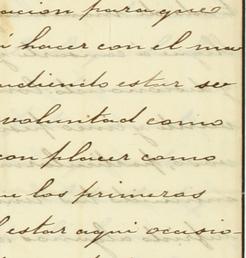 acion para que
i hacer con el ma
udiendo estar se
voluntad como
con placer como
ue las primeras
l estar aqui ocasio